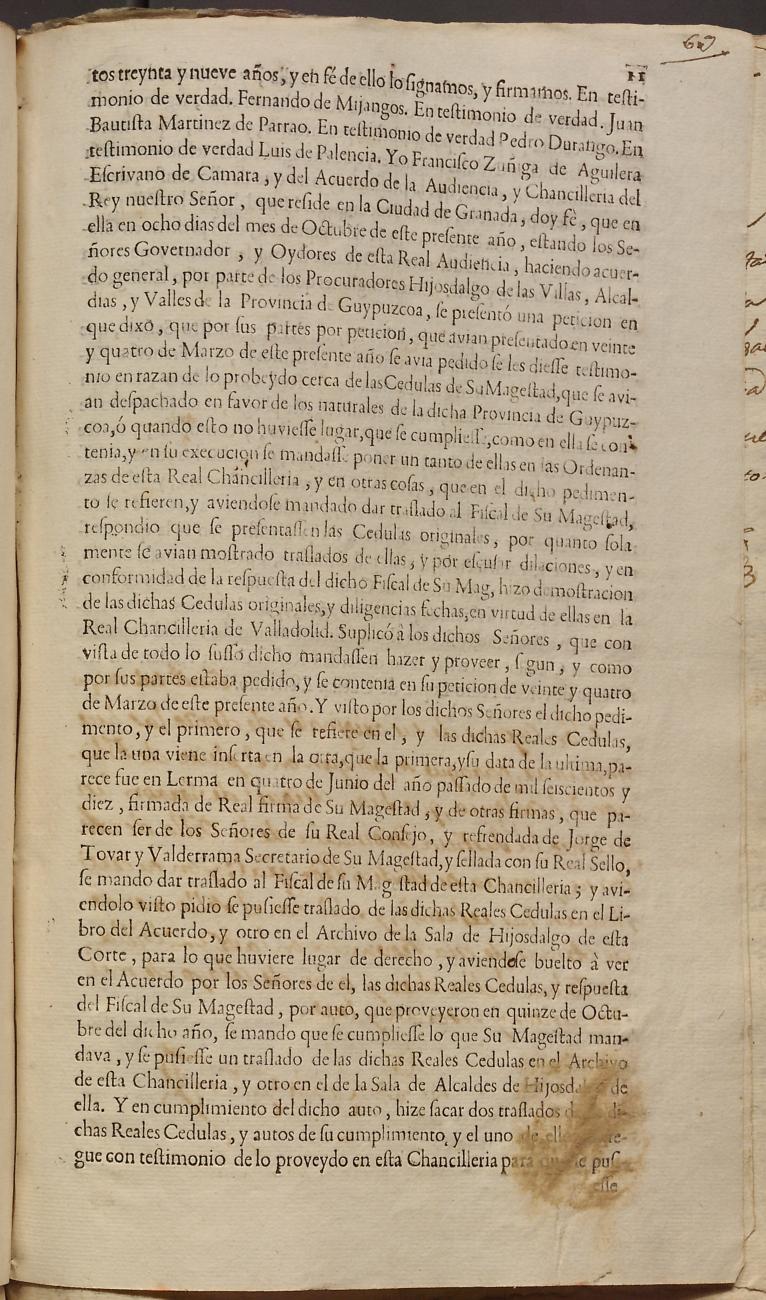 60
11
tos treynta y nueve años, y en fé de ello lo signamos, y firmamos. En testi-
monio de verdad. Fernando de Mijangos. En testimonio de verdad. Juan
Bautista Martinez de Parrao. En testimonio de verdad Pedro Durango. En
testimonio de verdad Luis de Palencia. Yo Francisco Zuñiga de Aguilera
Escrivano de Camara, y del Acuerdo de la Audiencia, y Chancilleria del
Rey nuestro Señor, que reside en la Ciudad de Granada, doy fé, que en
ella en ocho dias del mes de Octubre de este presente año, estando los Se-
ñores Governador, y Oydores de esta Real Audiencia, haciendo acuer-
do general, por parte de los Procuradores Hijosdalgo de las Villas, Alcal-
dias, y Valles de la Provincia de Guypuzcoa, se presentó una peticion en
que dixo, que por sus partes por peticion, que avian presentado en veinte
y quatro de Marzo de este presente año se avia pedido se les diesse testimo-
nio en razan de lo probeydo cerca de las Cedulas de Su Magestad, que se avi-
an despachado en favor de los naturales de la dicha Provincia de Guypuz-
coa, ó quando esto no huviesse lugar, que se cumpliesse, como en ella se con-
tenia, y en su execucion se mandasse poner un tanto de ellas en las Ordenan-
zas de esta Real Chancilleria, y en otras cosas, que en el dicho pedimen-
to se refieren, y aviendose mandado dar traslado al Fiscal de Su Magestad,
respondio que se presentassen las Cedulas originales, por quanto sola
mente se avian mostrado traslados de ellas, y por escusar dilaciones, y en
conformidad de la respuesta del dicho Fiscal de Su Mag, hizo demostracion
de las dichas Cedulas originales, y diligencias fechas, en virtud de ellas en la
Real Chancilleria de Valladolid. Suplicó à los dichos Señores, que con
vista de todo lo susso dicho mandassen hazer y proveer, segun, y como
por sus partes estaba pedido, y se contenia en su peticion de veinte y quatro
de Marzo de este presente año. Y visto por los dichos Señores el dicho pedi-
mento, y el primero, que se refiere en el, y las dichas Reales Cedulas,
que la una viene inserta en la otra, que la primera, y su data de la ultima, pa-
rece fue en Lerma en quatro de Junio del año passado de mil seiscientos y
diez, firmada de Real firma de Su Magestad, y de otras firmas, que pa-
recen ser de los Señores de su Real Consejo, y refrendada de Jorge de
Tovar y Valderrama Secretario de Su Magestad, y sellada con su Real Sello,
se mando dar traslado al Fiscal de su Magestad de esta Chancilleria; y avi-
endolo visto pidio se pusiesse traslado de las dichas Reales Cedulas en el Li-
bro del Acuerdo, y otro en el Archivo de la Sala de Hijosdalgo de esta
Corte, para lo que huviere lugar de derecho, y aviendose buelto à ver
en el Acuerdo por los Señores de el, las dichas Reales Cedulas, y respuesta
del Fiscal de Su Magestad, por auto, que proveyeron en quinze de Octu-
bre del dicho año, se mando que se cumpliesse lo que Su Magestad man-
dava, y se pusiesse un traslado de las dichas Reales Cedulas en el Archivo
de esta Chancilleria, y otro en el de la Sala de Alcaldes de Hijosdalgo de
ella. Y en cumplimiento del dicho auto, hize sacar dos traslados di-
chas Reales Cedulas, y autos de su cumplimiento, y el uno de
gue con testimonio de lo proveydo en esta Chancilleria para que se pusi-
esse